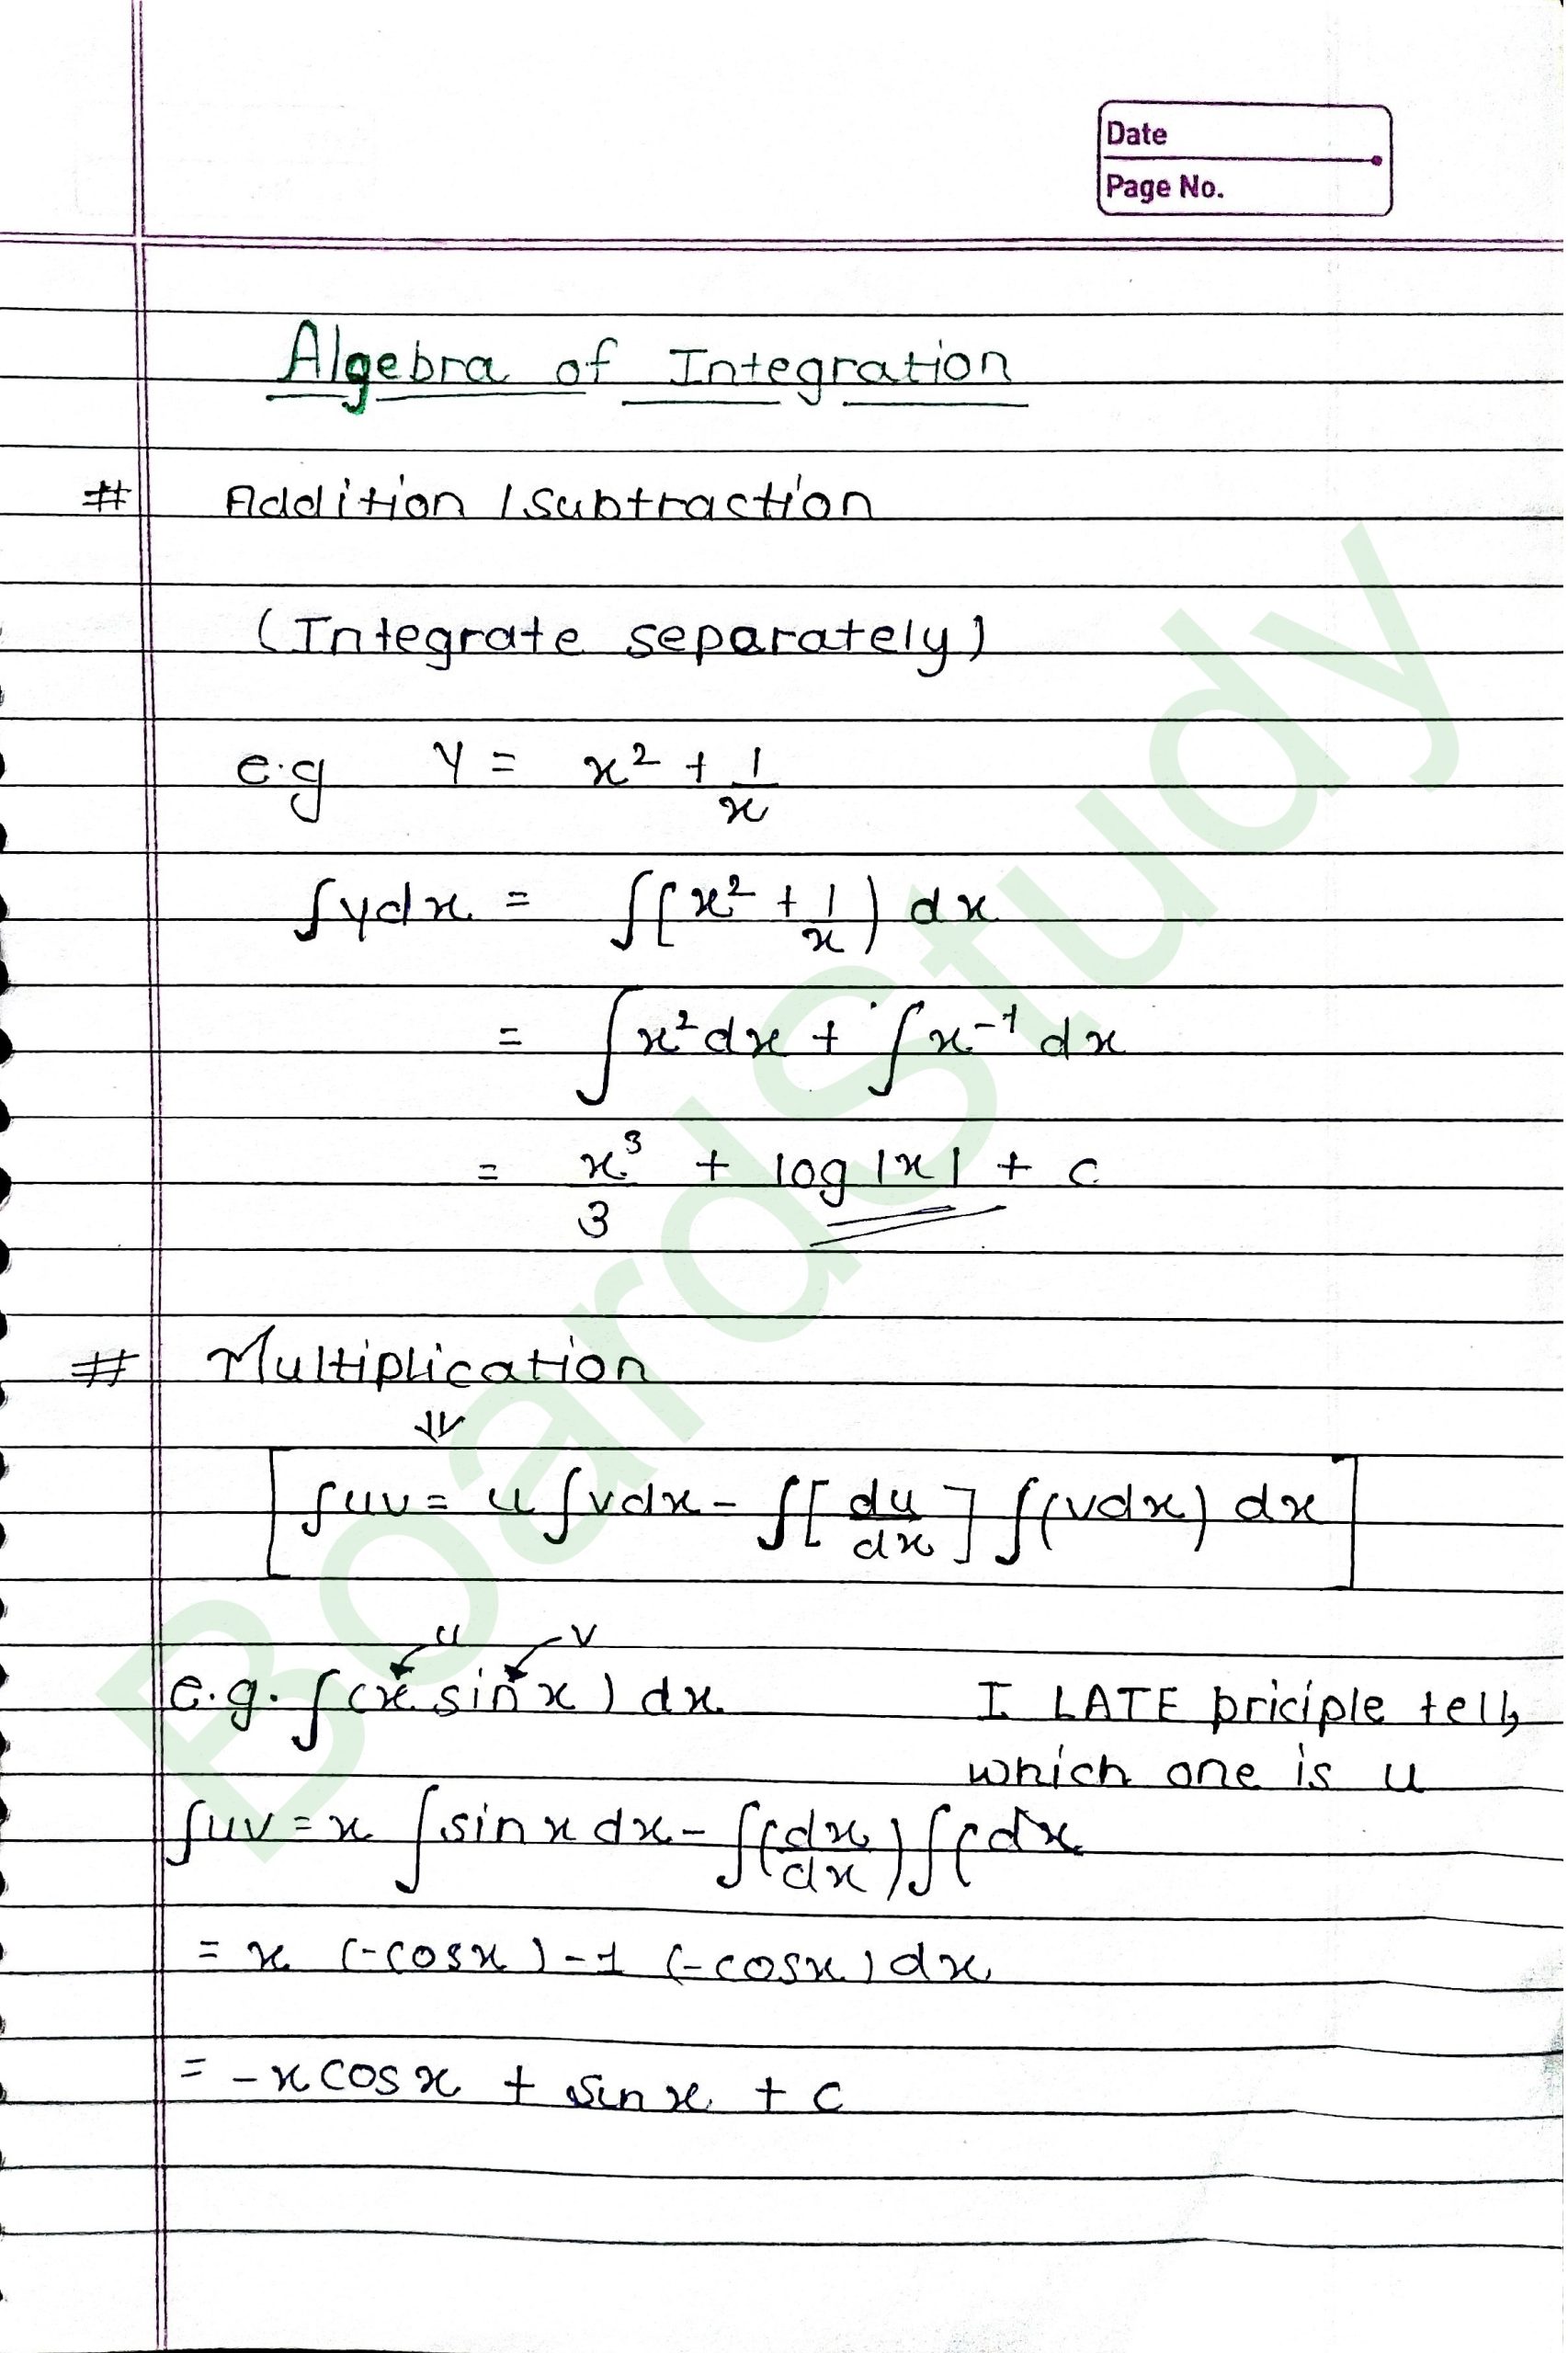 Date
Page No.
Algebra of Integration
# Addition / Subtraction
(Integrate separately)
e.g y = x² + 1/x
∫ydx = ∫[x² + 1/x) dx
= ∫x²dx + ∫x⁻¹ dx
= x³/3 + log|x| + c
# Multiplication
⇓
∫uv = u∫vdx - ∫[du/dx] ∫(vdx) dx
u v
e.g. ∫(x sin x) dx I LATE priciple tells
which one is u
∫uv = x ∫sin x dx - ∫(dx/dx) ∫( dx
= x (-cosx) - 1 (-cosx) dx
= -x cos x + sin x + c
BoardStudy